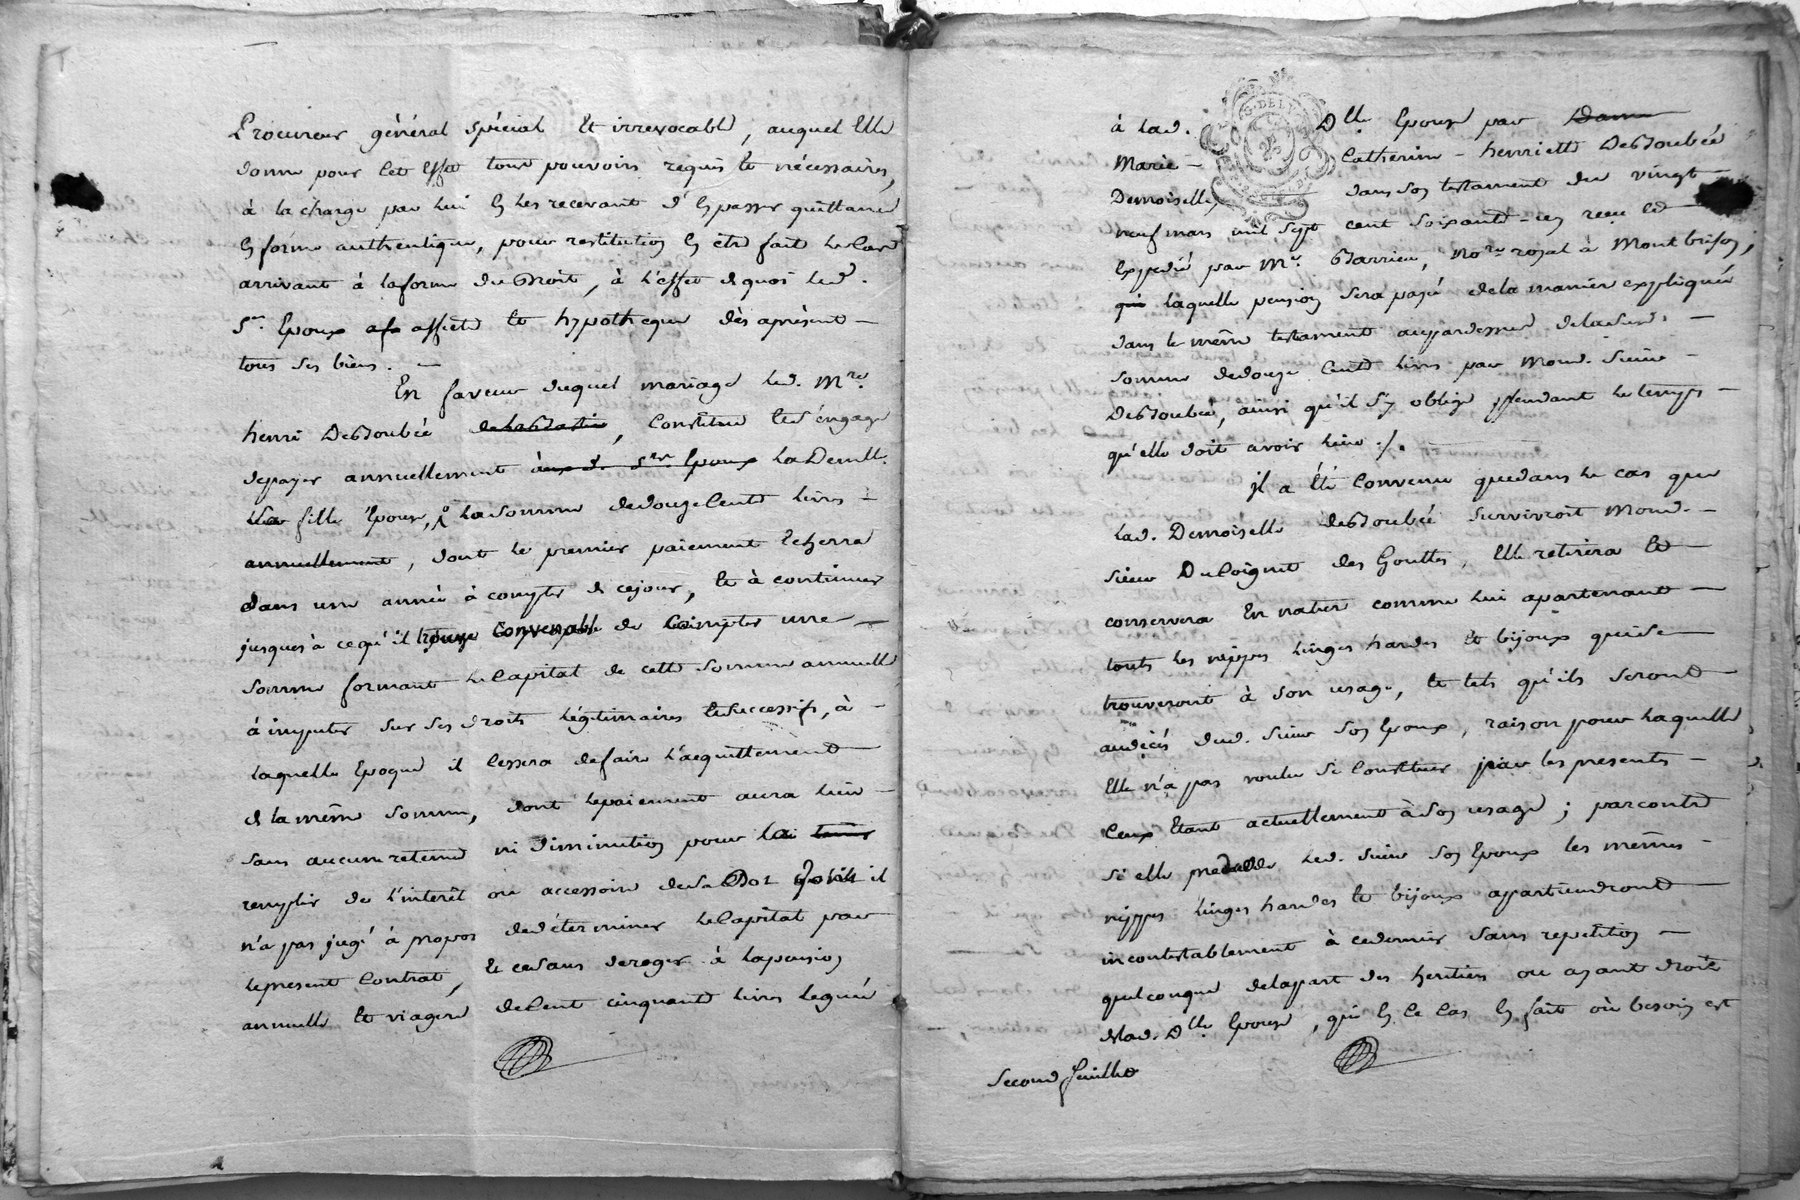 Procureur général spécial et irrevocable, auquel Elle
donne pour cet Effet tous pouvoirs requis et nécessaires,
à la charge par lui En les recevant d'En passer quittance
En forme authentique, pour restitution En être fait le Cas
arrivant à la forme du Droit, à l'effet de quoi led.
Sr. Epoux affecte et hypotheque dès aprésent —
tous ses biens. —
En faveur duquel mariage led. Mre.
henri DesJoubée , Constitue et s'engage
de payer annuellement à Epoux La Demlle.
sa fille Epouse, la somme de douze Cents livres —
annuellement, dont le premier paiement Echerra
dans une année à compter de ce jour, et à continuer
jusques à ce qu'il trouve Convenable de Compter une —
somme formant le Capital de cette somme annuelle
à imputer sur ses droits légitimaires et successifs, à —
laquelle Epoque il Cessera de faire l'acquittement
de la même somme, dont le paiement aura lieu —
sans aucune retenue ni diminution pour lui tenir
remplir de l'interêt ou accessoire de sa Dot il
n'a pas jugé à propos de déterminer le Capital par
le present Contrat, et ce sans deroger à la pension
annuelle et viagere de Cent cinquante livres leguée
à lad. Dlle. Epouse par Dame
Marie — Catherine — henriette DesJoubée
Demoiselle, dans son testament du vingt —
neuf mars mil sept cent soixante-un reçu et
expedié par Me. Barrieu, Nore. royal à Montbrison,
qui laquelle pension sera payée de la maniere expliquée
dans le même testament au par dessus de la susd. —
somme de douze Cents livres par Mond. Sieur —
DesJoubée, ainsi qu'il s'y oblige pendant le temps —
qu'elle doit avoir lieu ./.
Il a Eté Convenu que dans le cas que
lad. Demoiselle desJoubée survivroit Mond. —
sieur DuCoignet des Gouttes, Elle retirera et —
conservera En nature comme lui apartenant —
touts les nippes linges hardes et bijoux qui se —
trouveront à son usage, et tels qu'ils seront —
au décès dud. sieur son Epoux, raison pour laquelle
Elle n'a pas voulu se Constituer par les presentes —
Ceux Etant actuellement à son usage ; par contre
si elle predecede led. sieur son Epoux les mêmes —
nippes linges hardes et bijoux apartiendront —
incontestablement à ce dernier sans repetition —
quelconque de la part des heritiers ou ayant droit
de lad. Dlle. Epouse, qui En ce Cas En fait où besoin est
Second feuillet